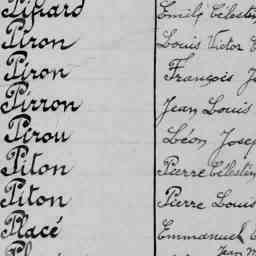 Pihard Emile Célestin
Piron Louis Victor
Piron François
Pirron Jean Louis
Pirou Léon Josep
Piton Pierre Célestin
Piton Pierre Louis
Placé Emmanuel
Jean